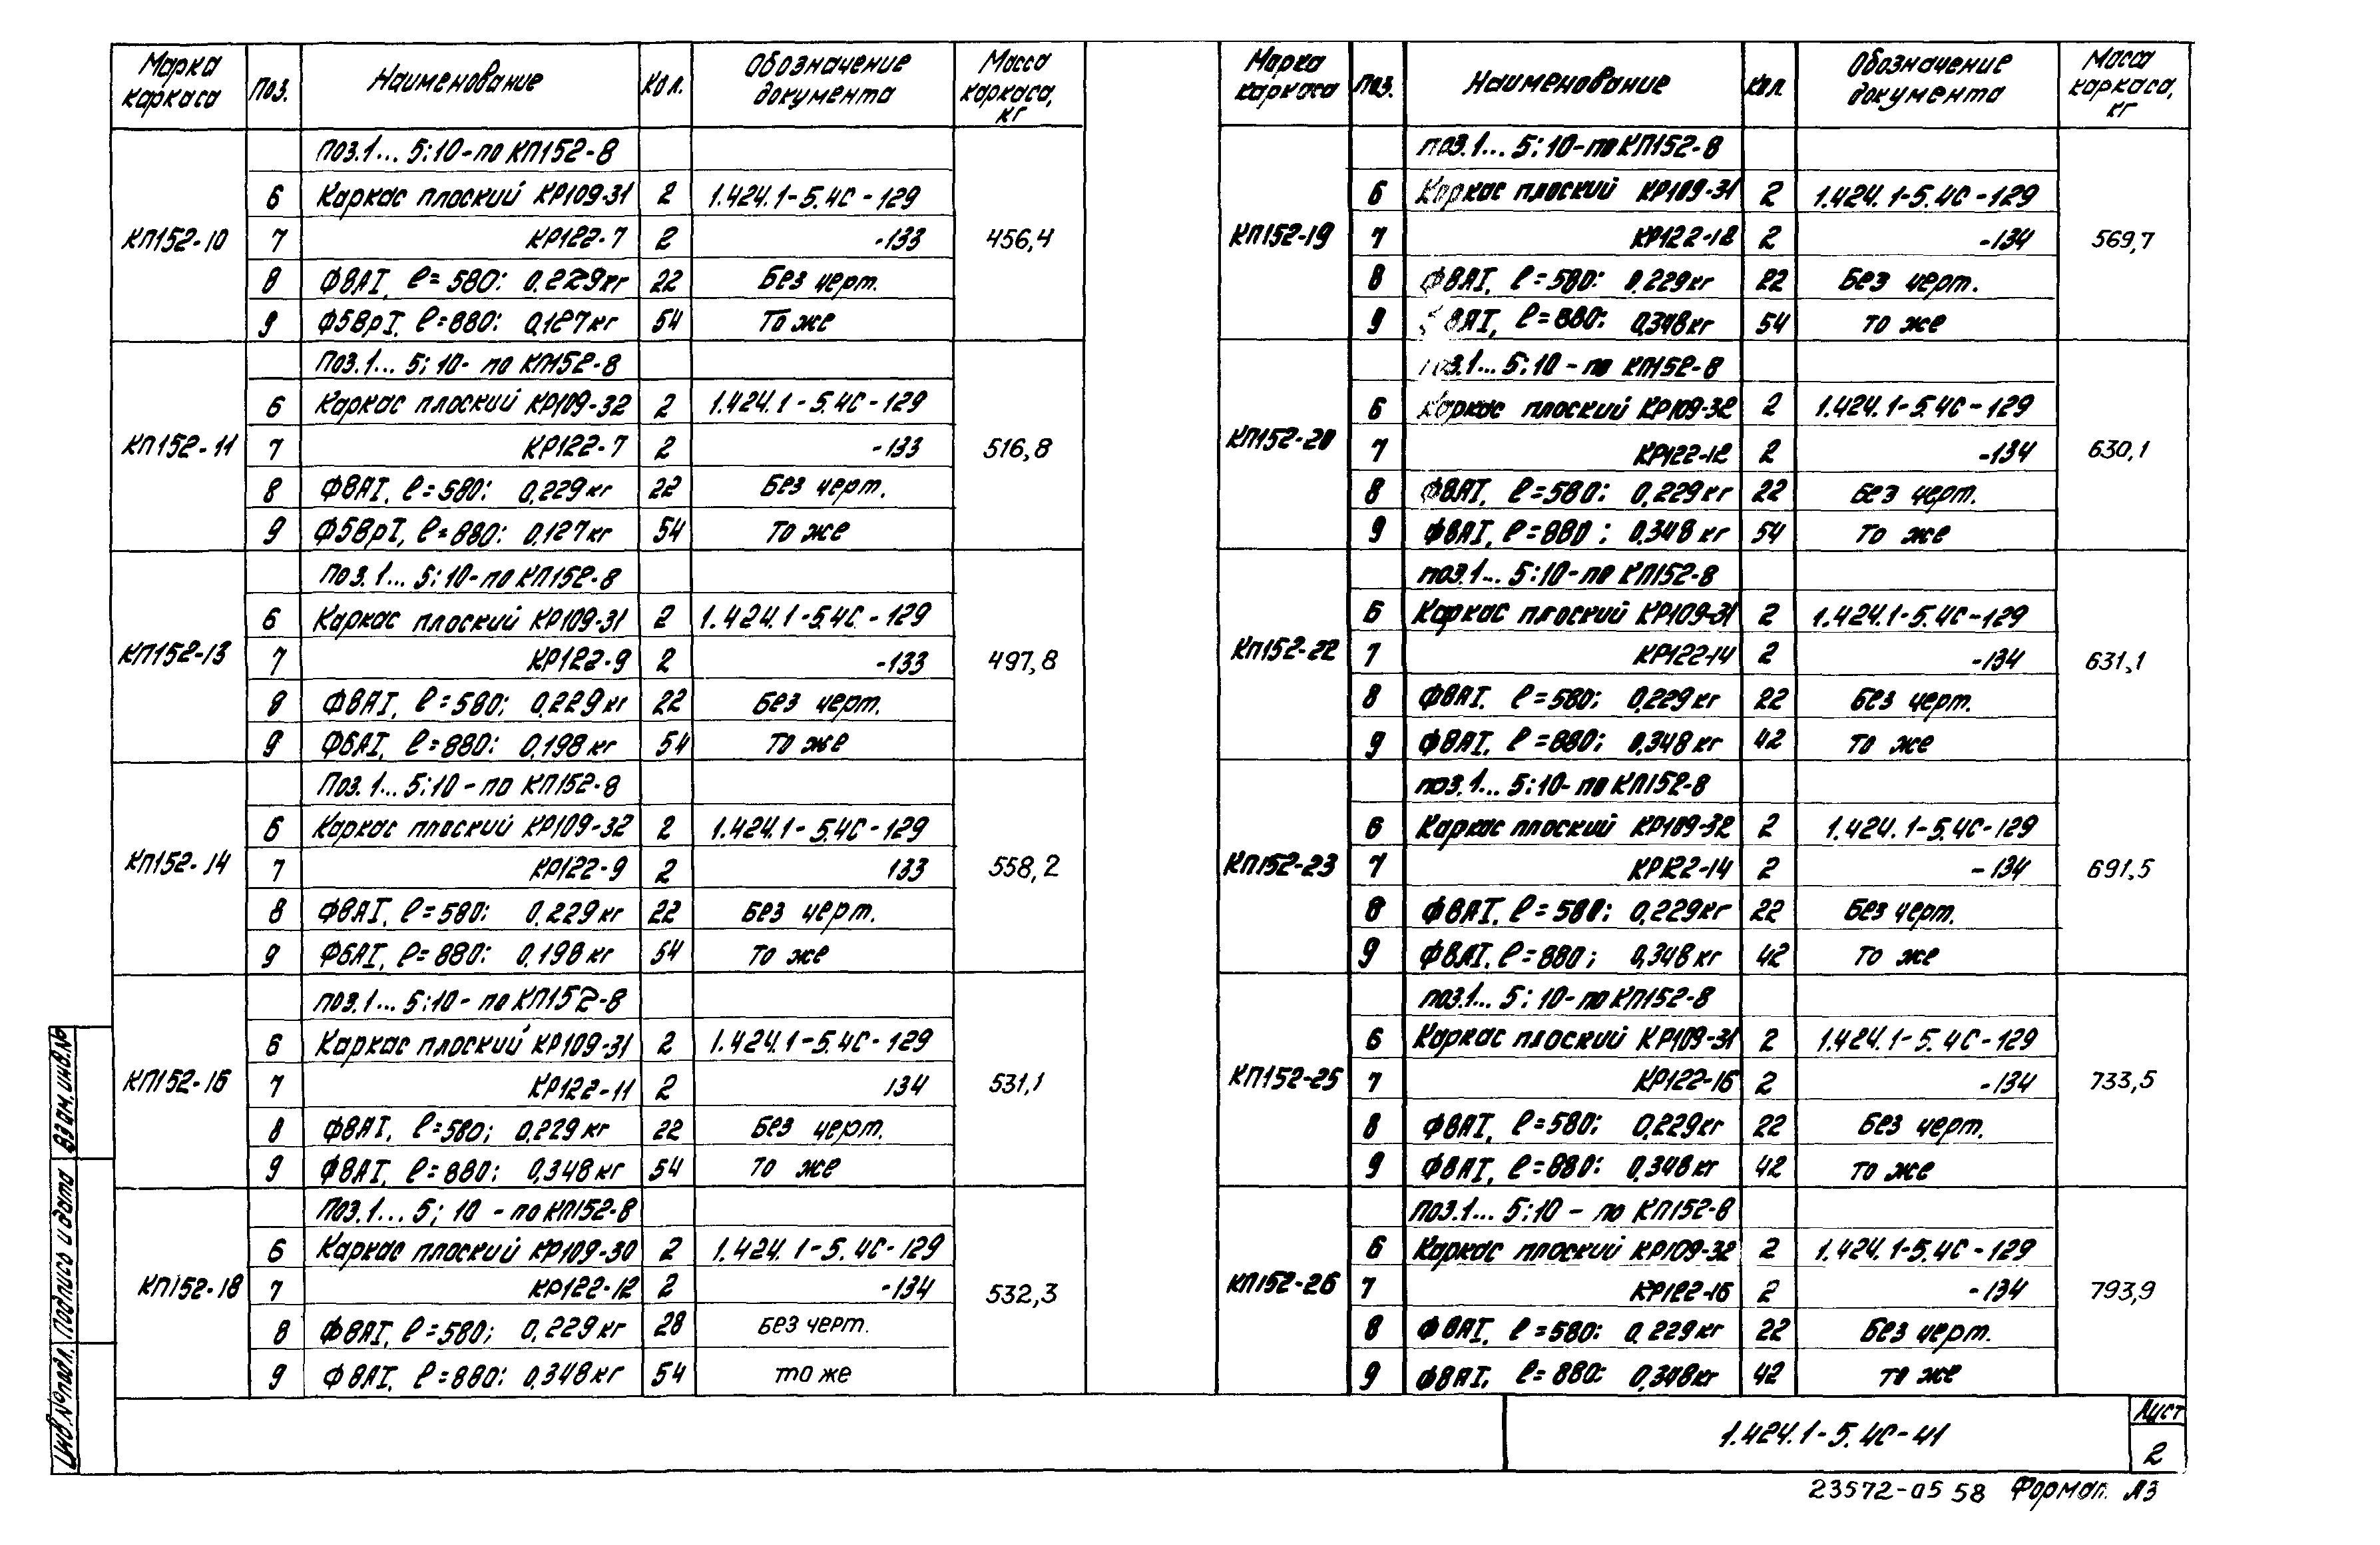 Марка каркаса Поз. Наименование Кол. Обозначение документа Масса каркаса, кг
Поз.1... 5; 10-по КП152-8
КП152-10 456,4
6 Каркас плоский КР109-31 2 1.424.1-5.4С-129
7 КР122-7 2 -133
8 Ф8АI, ℓ=580; 0,229кг 22 Без черт.
9 Ф5ВрI, ℓ=880; 0,127кг 54 То же
Поз.1... 5; 10- по КП152-8
КП152-11 516,8
6 Каркас плоский КР109-32 2 1.424.1-5.4С-129
7 КР122-7 2 -133
8 Ф8АI, ℓ=580; 0,229кг 22 Без черт.
9 Ф5ВрI, ℓ=880; 0,127кг 54 То же
Поз.1... 5; 10-по КП152-8
КП152-13 497,8
6 Каркас плоский КР109-31 2 1.424.1-5.4С-129
7 КР122-9 2 -133
8 Ф8АI, ℓ=580; 0,229кг 22 Без черт.
9 Ф6АI, ℓ=880; 0,198кг 54 То же
Поз.1... 5; 10-по КП152-8
КП152-14 558,2
6 Каркас плоский КР109-32 2 1.424.1-5.4С-129
7 КР122-9 2 133
8 Ф8АI, ℓ=580; 0,229кг 22 Без черт.
9 Ф6АI, ℓ=880; 0,198кг 54 То же
поз.1... 5; 10- по КП152-8
КП152-16 531,1
6 Каркас плоский КР109-31 2 1.424.1-5.4С-129
7 КР122-11 2 134
8 Ф8АI, ℓ=580; 0,229кг 22 Без черт.
9 Ф8АI, ℓ=880; 0,348кг 54 То же
Поз.1... 5; 10 - по КП152-8
КП152-18 532,3
6 Каркас плоский КР109-30 2 1.424.1-5.4С-129
7 КР122-12 2 -134
8 Ф8АI, ℓ=580; 0,229кг 28 Без черт.
9 Ф8АI, ℓ=880; 0,348кг 54 то же
Марка каркаса Поз. Наименование Кол. Обозначение документа Масса каркаса, кг
поз.1... 5; 10-по КП152-8
КП152-19 569,7
6 Каркас плоский КР109-31 2 1.424.1-5.4С-129
7 КР122-12 2 -134
8 Ф8АI, ℓ=580; 0,229кг 22 Без черт.
9 Ф8АI, ℓ=880; 0,348кг 54 То же
поз.1... 5; 10 - по КП152-8
КП152-20 630,1
6 Каркас плоский КР109-32 2 1.424.1-5.4С-129
7 КР122-12 2 -134
8 Ф8АI, ℓ=580; 0,229кг 22 Без черт.
9 Ф8АI, ℓ=880; 0,348кг 54 То же
поз.1... 5; 10-по КП152-8
КП152-22 631,1
6 Каркас плоский КР109-31 2 1.424.1-5.4С-129
7 КР122-14 2 -134
8 Ф8АI, ℓ=580; 0,229кг 22 Без черт.
9 Ф8АI, ℓ=880; 0,348кг 42 То же
поз.1... 5; 10- по КП152-8
КП152-23 691,5
6 Каркас плоский КР109-32 2 1.424.1-5.4С-129
7 КР122-14 2 -134
8 Ф8АI, ℓ=580; 0,229кг 22 Без черт.
9 Ф8АI, ℓ=880; 0,348кг 42 То же
поз.1... 5; 10-по КП152-8
КП152-25 733,5
6 Каркас плоский КР109-31 2 1.424.1-5.4С-129
7 КР122-16 2 -134
8 Ф8АI, ℓ=580; 0,229кг 22 Без черт.
9 Ф8АI, ℓ=880; 0,348кг 42 То же
поз.1... 5; 10 - по КП152-8
КП152-26 793,9
6 Каркас плоский КР109-32 2 1.424.1-5.4С-129
7 КР122-16 2 -134
8 Ф8АI, ℓ=580; 0,229кг 22 Без черт.
9 Ф8АI, ℓ=880; 0,348кг 42 То же
Взам. инв.№
Подпись и дата
Инв.№подл.
1.424.1-5.4С-41
Лист
2
23572-05 58 Формат А3